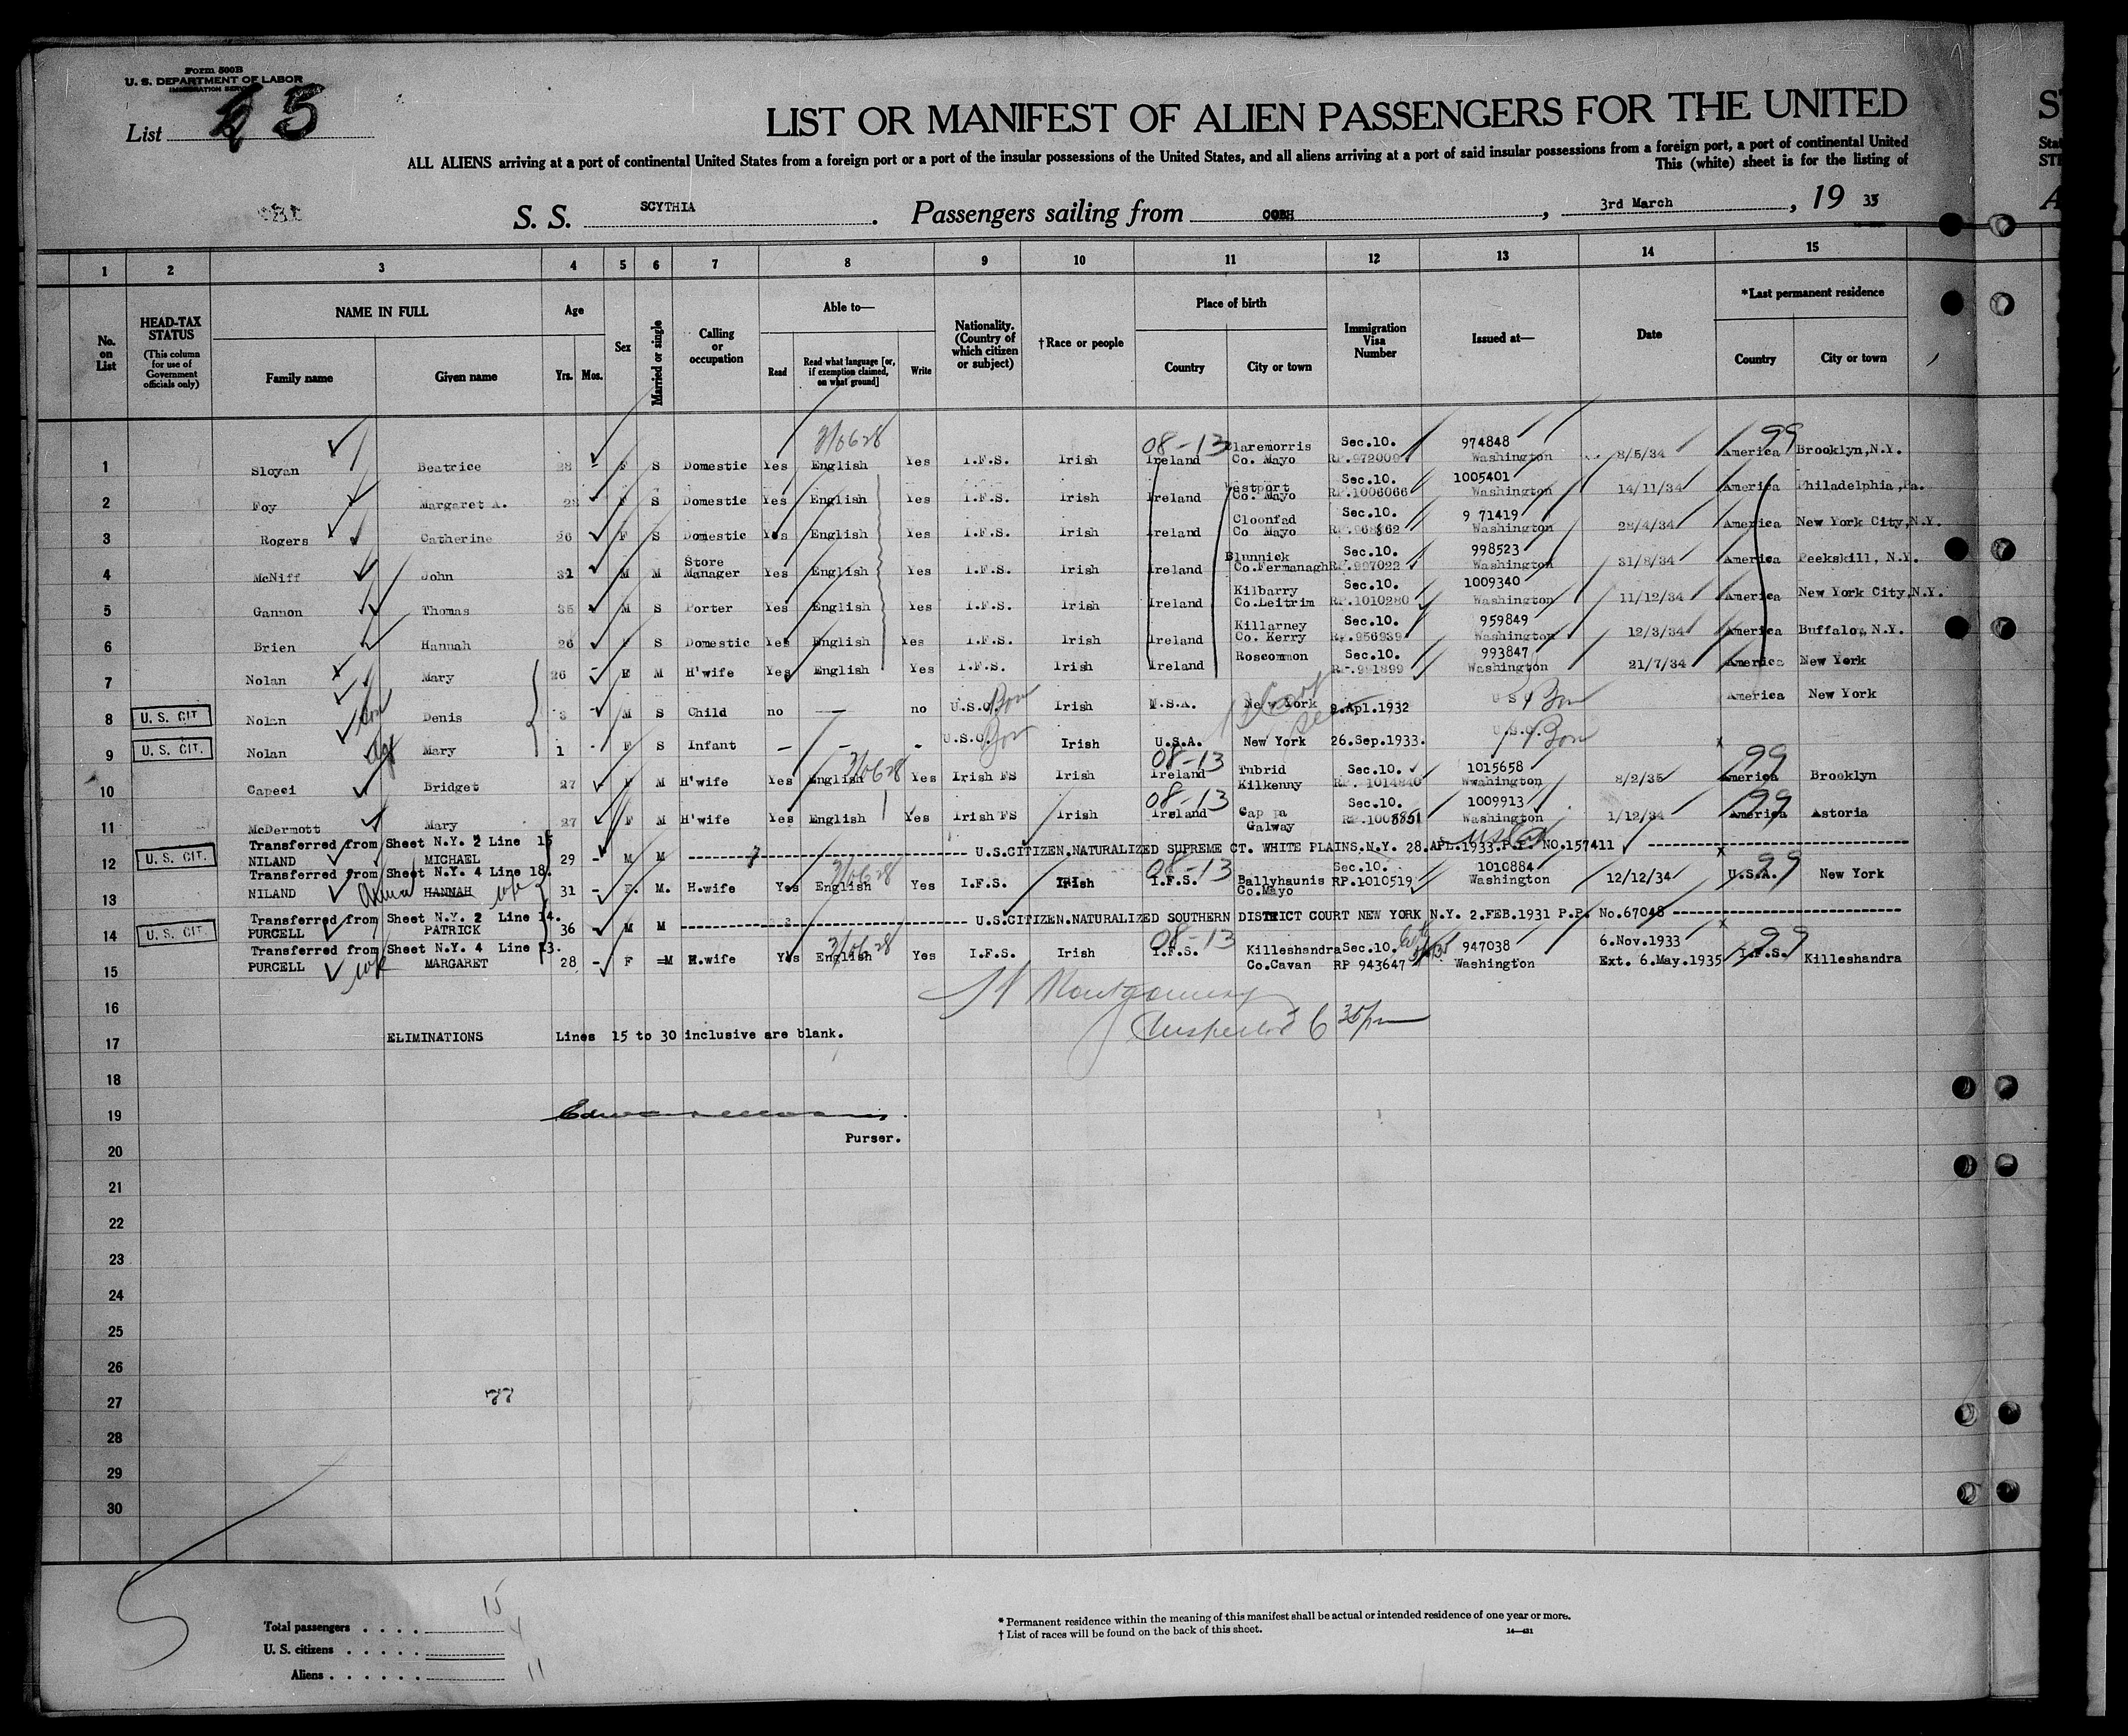 Form 500B
U. S. DEPARTMENT OF LABOR
IMMIGRATION SERVICE
List 5
LIST OR MANIFEST OF ALIEN PASSENGERS FOR THE UNITED
ALL ALIENS arriving at a port of continental United States from a foreign port or a port of the insular possessions of the United States, and all aliens arriving at a port of said insular possessions from a foreign port, a port of continental United
This (white) sheet is for the listing of
S. S. SCYTHIA. Passengers sailing from COBH, 3rd March, 19 35
1 2 3 4 5 6 7 8 9 10 11 12 13 14 15
No. on List
HEAD-TAX STATUS (This column for use of Government officials only)
NAME IN FULL Family name Given name
Age Yrs. Mos.
Sex
Married or single
Calling or occupation
Able to— Read Read what language [or, if exemption claimed, on what ground] Write
Nationality. (Country of which citizen or subject)
†Race or people
Place of birth Country City or town
Immigration Visa Number
Issued at—
Date
*Last permanent residence Country City or town
1 Sloyan Beatrice 28 - F S Domestic Yes English 3/0628 Yes I.F.S. Irish 08-13 Ireland Claremorris Co. Mayo Sec.10. RP.972009 974848 Washington 8/5/34 America 99 Brooklyn,N.Y.
2 Foy Margaret A. 28 F S Domestic Yes English Yes I.F.S. Irish Ireland Westport Co. Mayo Sec.10. RP.1006066 1005401 Washington 14/11/34 America Philadelphia,Pa.
3 Rogers Catherine 26 F S Domestic Yes English Yes I.F.S. Irish Ireland Cloonfad Co Mayo Sec.10. RP.968862 9 71419 Washington 28/4/34 America New York City,N.Y.
4 McNiff John 31 M M Store Manager Yes English Yes I.F.S. Irish Ireland Blunnick Co.Fermanagh Sec.10. RP.997022 998523 Washington 31/8/34 America Peekskill, N.Y.
5 Gannon Thomas 35 M S Porter Yes English Yes I.F.S. Irish Ireland Kilbarry Co.Leitrim Sec.10. RP.1010280 1009340 Washington 11/12/34 America New York City,N.Y.
6 Brien Hannah 26 F S Domestic Yes English Yes I.F.S. Irish Ireland Killarney Co. Kerry Sec.10. RP.956939 959849 Washington 12/3/34 America Buffalo, N.Y.
7 Nolan Mary 26 - F M H'wife Yes English Yes I.F.S. Irish Ireland Roscommon Sec.10. RP.991899 993847 Washington 21/7/34 America New York
8 U. S. CIT. Nolan son Denis 3 - M S Child no — no U.S.C. Born Irish U.S.A. New York 9.Apl.1932 U S C Born America New York
9 U. S. CIT. Nolan Mary 1 - F S Infant — — - U.S.C. Irish U.S.A. New York 26.Sep.1933. U.S.C. Born x
10 Capeci Bridget 27 F M H'wife Yes English 3/0628 Yes Irish FS Irish 08-13 Ireland Tubrid Kilkenny Sec.10. RP. 1014840 1015658 Wwashington 8/2/35 America 99 Brooklyn
11 McDermott Mary 27 F M H'wife Yes English Yes Irish FS Irish 08-13 Ireland Cappa Galway Sec.10. 1009913 Washington 1/12/34 America 99 Astoria
Transferred from Sheet N.Y. 2 Line 15
12 U. S. CIT. NILAND MICHAEL 29 - M M U.S.CITIZEN.NATURALIZED SUPREME CT. WHITE PLAINS.N.Y. 28.APL.1933.P.P. NO.157411 x
Transferred from Sheet N.Y. 4 Line 18.
13 NILAND HANNAH wife 31 - F. M. H.wife Yes English 3/0628 Yes I.F.S. Irish 08-13 I.F.S. Ballyhaunis Co.Mayo Sec.10. RP.1010519 1010884 Washington 12/12/34 U.S.A. 99 New York
Transferred from Sheet N.Y. 2 Line 14.
14 U. S. CIT. PURCELL PATRICK 36 - M M U.S.CITIZEN.NATURALIZED SOUTHERN DISTRICT COURT NEW YORK N.Y. 2.FEB.1931 P.P. No.67048 x
Transferred from Sheet N.Y. 4 Line 13.
15 PURCELL wife MARGARET 28 - F M H.wife Yes English 3/0628 Yes I.F.S. Irish 08-13 I.F.S. Killeshandra Co.Cavan Sec.10. RP 943647 947038 Washington 6.Nov.1933 Ext. 6.May.1935 I.F.S. 99 Killeshandra
16 Montgomery
Inspector 6 30 pm
17 ELIMINATIONS Lines 15 to 30 inclusive are blank.
18
19
Purser.
20
21
22
23
24
25
26
27 77
28
29
30
Total passengers . . . . 15
U. S. citizens . . . . . 4
Aliens . . . . . . 11
* Permanent residence within the meaning of this manifest shall be actual or intended residence of one year or more.
† List of races will be found on the back of this sheet.
14—431